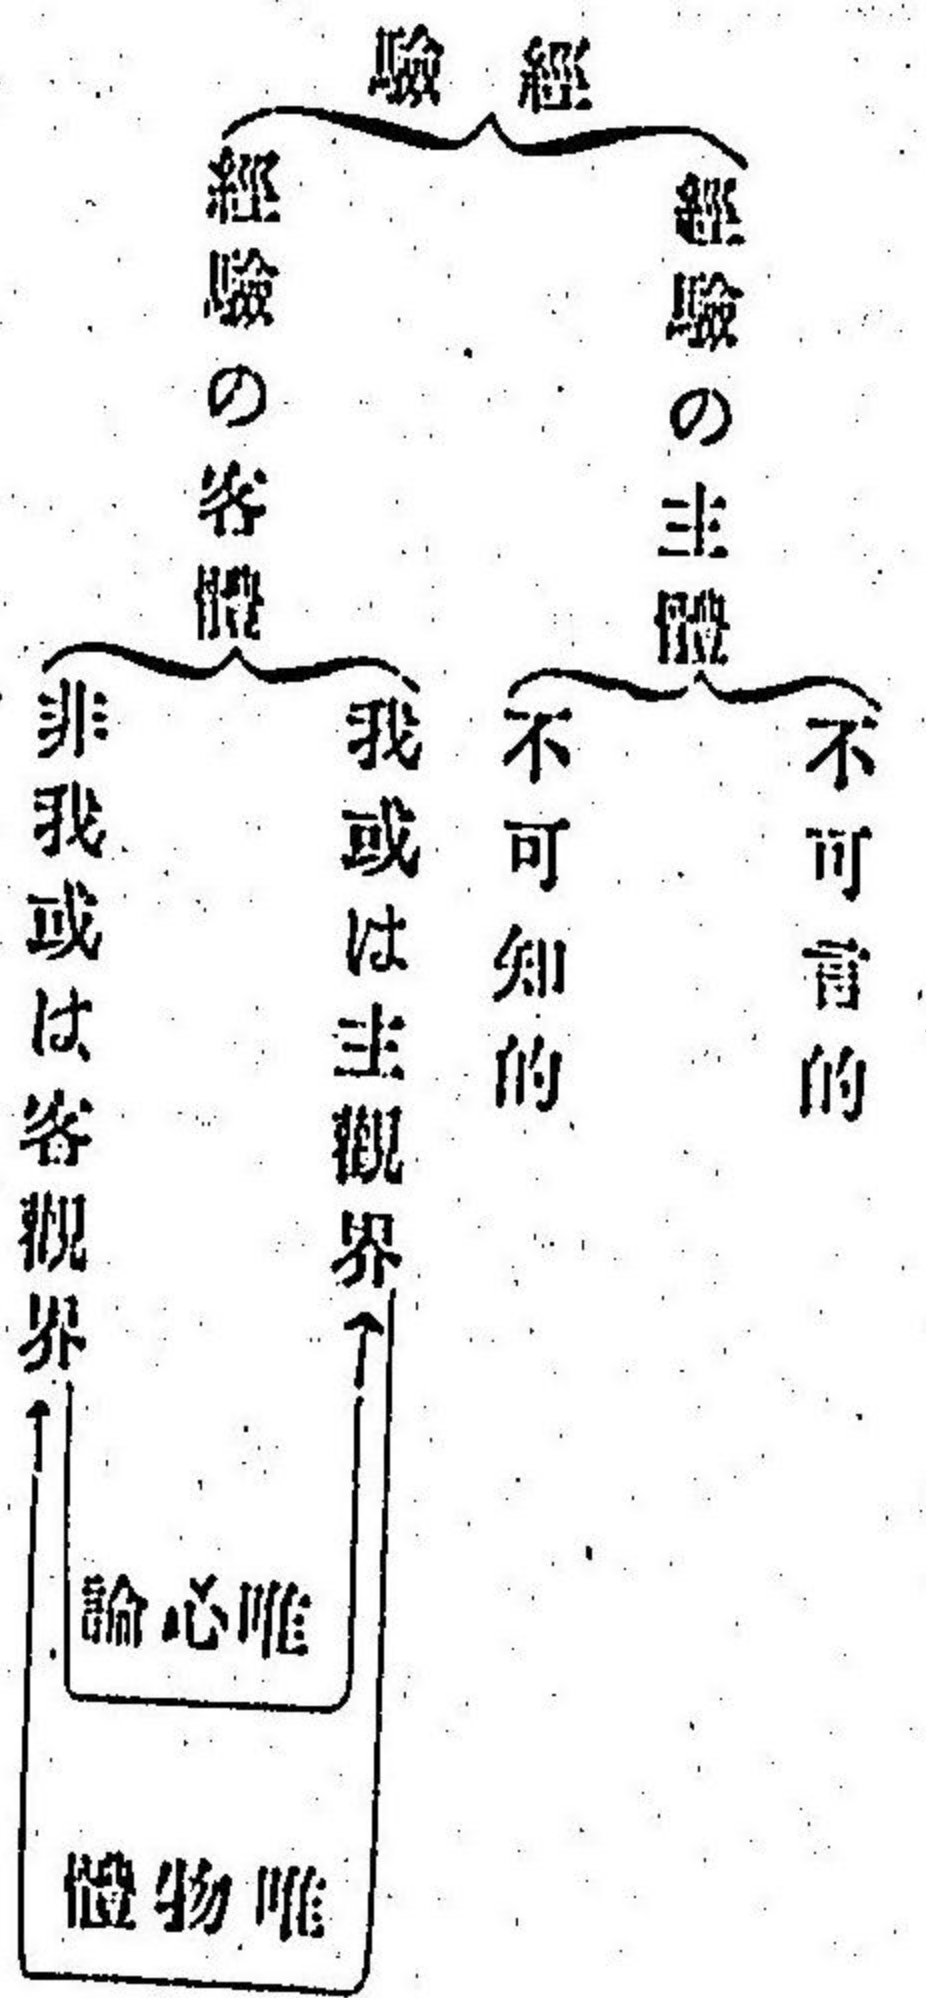 經驗
經驗の主體
不可言的
不可知的
經驗の客體
我或は主觀界
非我或は客觀界
唯心論
唯物體